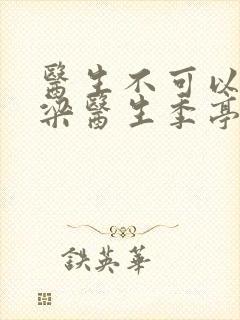 醫生不可以
梁醫生季亭
鉄英華